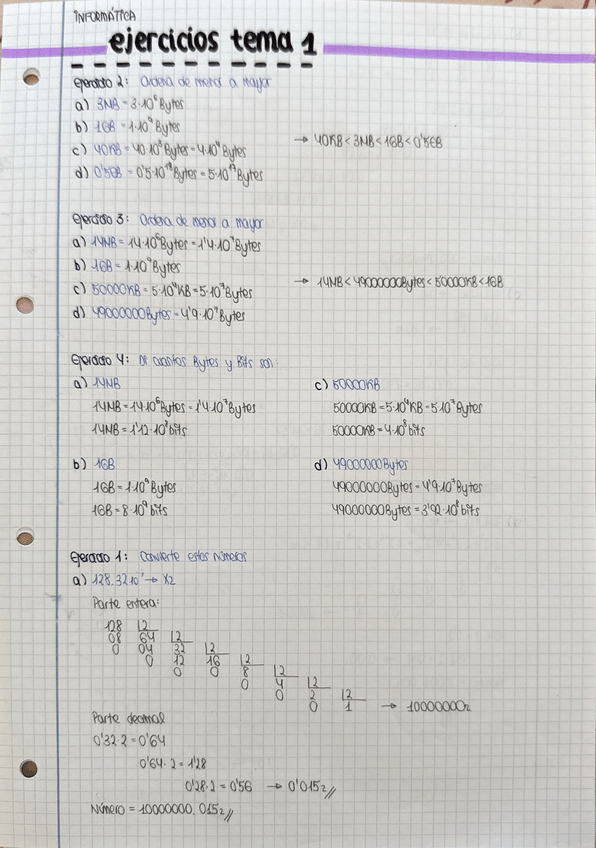 INFORMÁTICA
ejercicios tema 1
Ejercicio 2: Ordena de menor a mayor
a) 3MB = 3·10⁶ Bytes
b) 1GB = 1·10⁹ Bytes
c) 40KB = 40·10³ Bytes = 4·10⁴ Bytes
d) 0'5EB = 0'5·10¹⁸ Bytes = 5·10¹⁷ Bytes
→ 40KB < 3MB < 1GB < 0'5EB
Ejercicio 3: Ordena de menor a mayor
a) 14MB = 14·10⁶ Bytes = 1'4·10⁷ Bytes
b) 1GB = 1·10⁹ Bytes
c) 50000KB = 5·10⁴ KB = 5·10⁷ Bytes
d) 49000000Bytes = 4'9·10⁷ Bytes
→ 14MB < 49000000Bytes < 50000KB < 1GB
Ejercicio 4: Di cuantos Bytes y Bits son:
a) 14MB
14MB = 14·10⁶ Bytes = 1'4·10⁷ Bytes
14MB = 1'12·10⁸ bits
b) 1GB
1GB = 1·10⁹ Bytes
1GB = 8·10⁹ bits
c) 50000KB
50000KB = 5·10⁴ KB = 5·10⁷ Bytes
50000KB = 4·10⁸ bits
d) 49000000Bytes
49000000Bytes = 4'9·10⁷ Bytes
49000000Bytes = 3'92·10⁸ bits
Ejercicio 1: Convierte estos números
a) 128.32₁₀ → X₂
Parte entera:
128 |2
08 64 |2
0 04 32 |2
0 12 16 |2
0 0 8 |2
0 4 |2
0 2 |2
0 1 → 10000000₂
Parte decimal
0'32·2 = 0'64
0'64·2 = 1'28
0'28·2 = 0'56 → 0'015₂//
Número = 10000000.015₂//